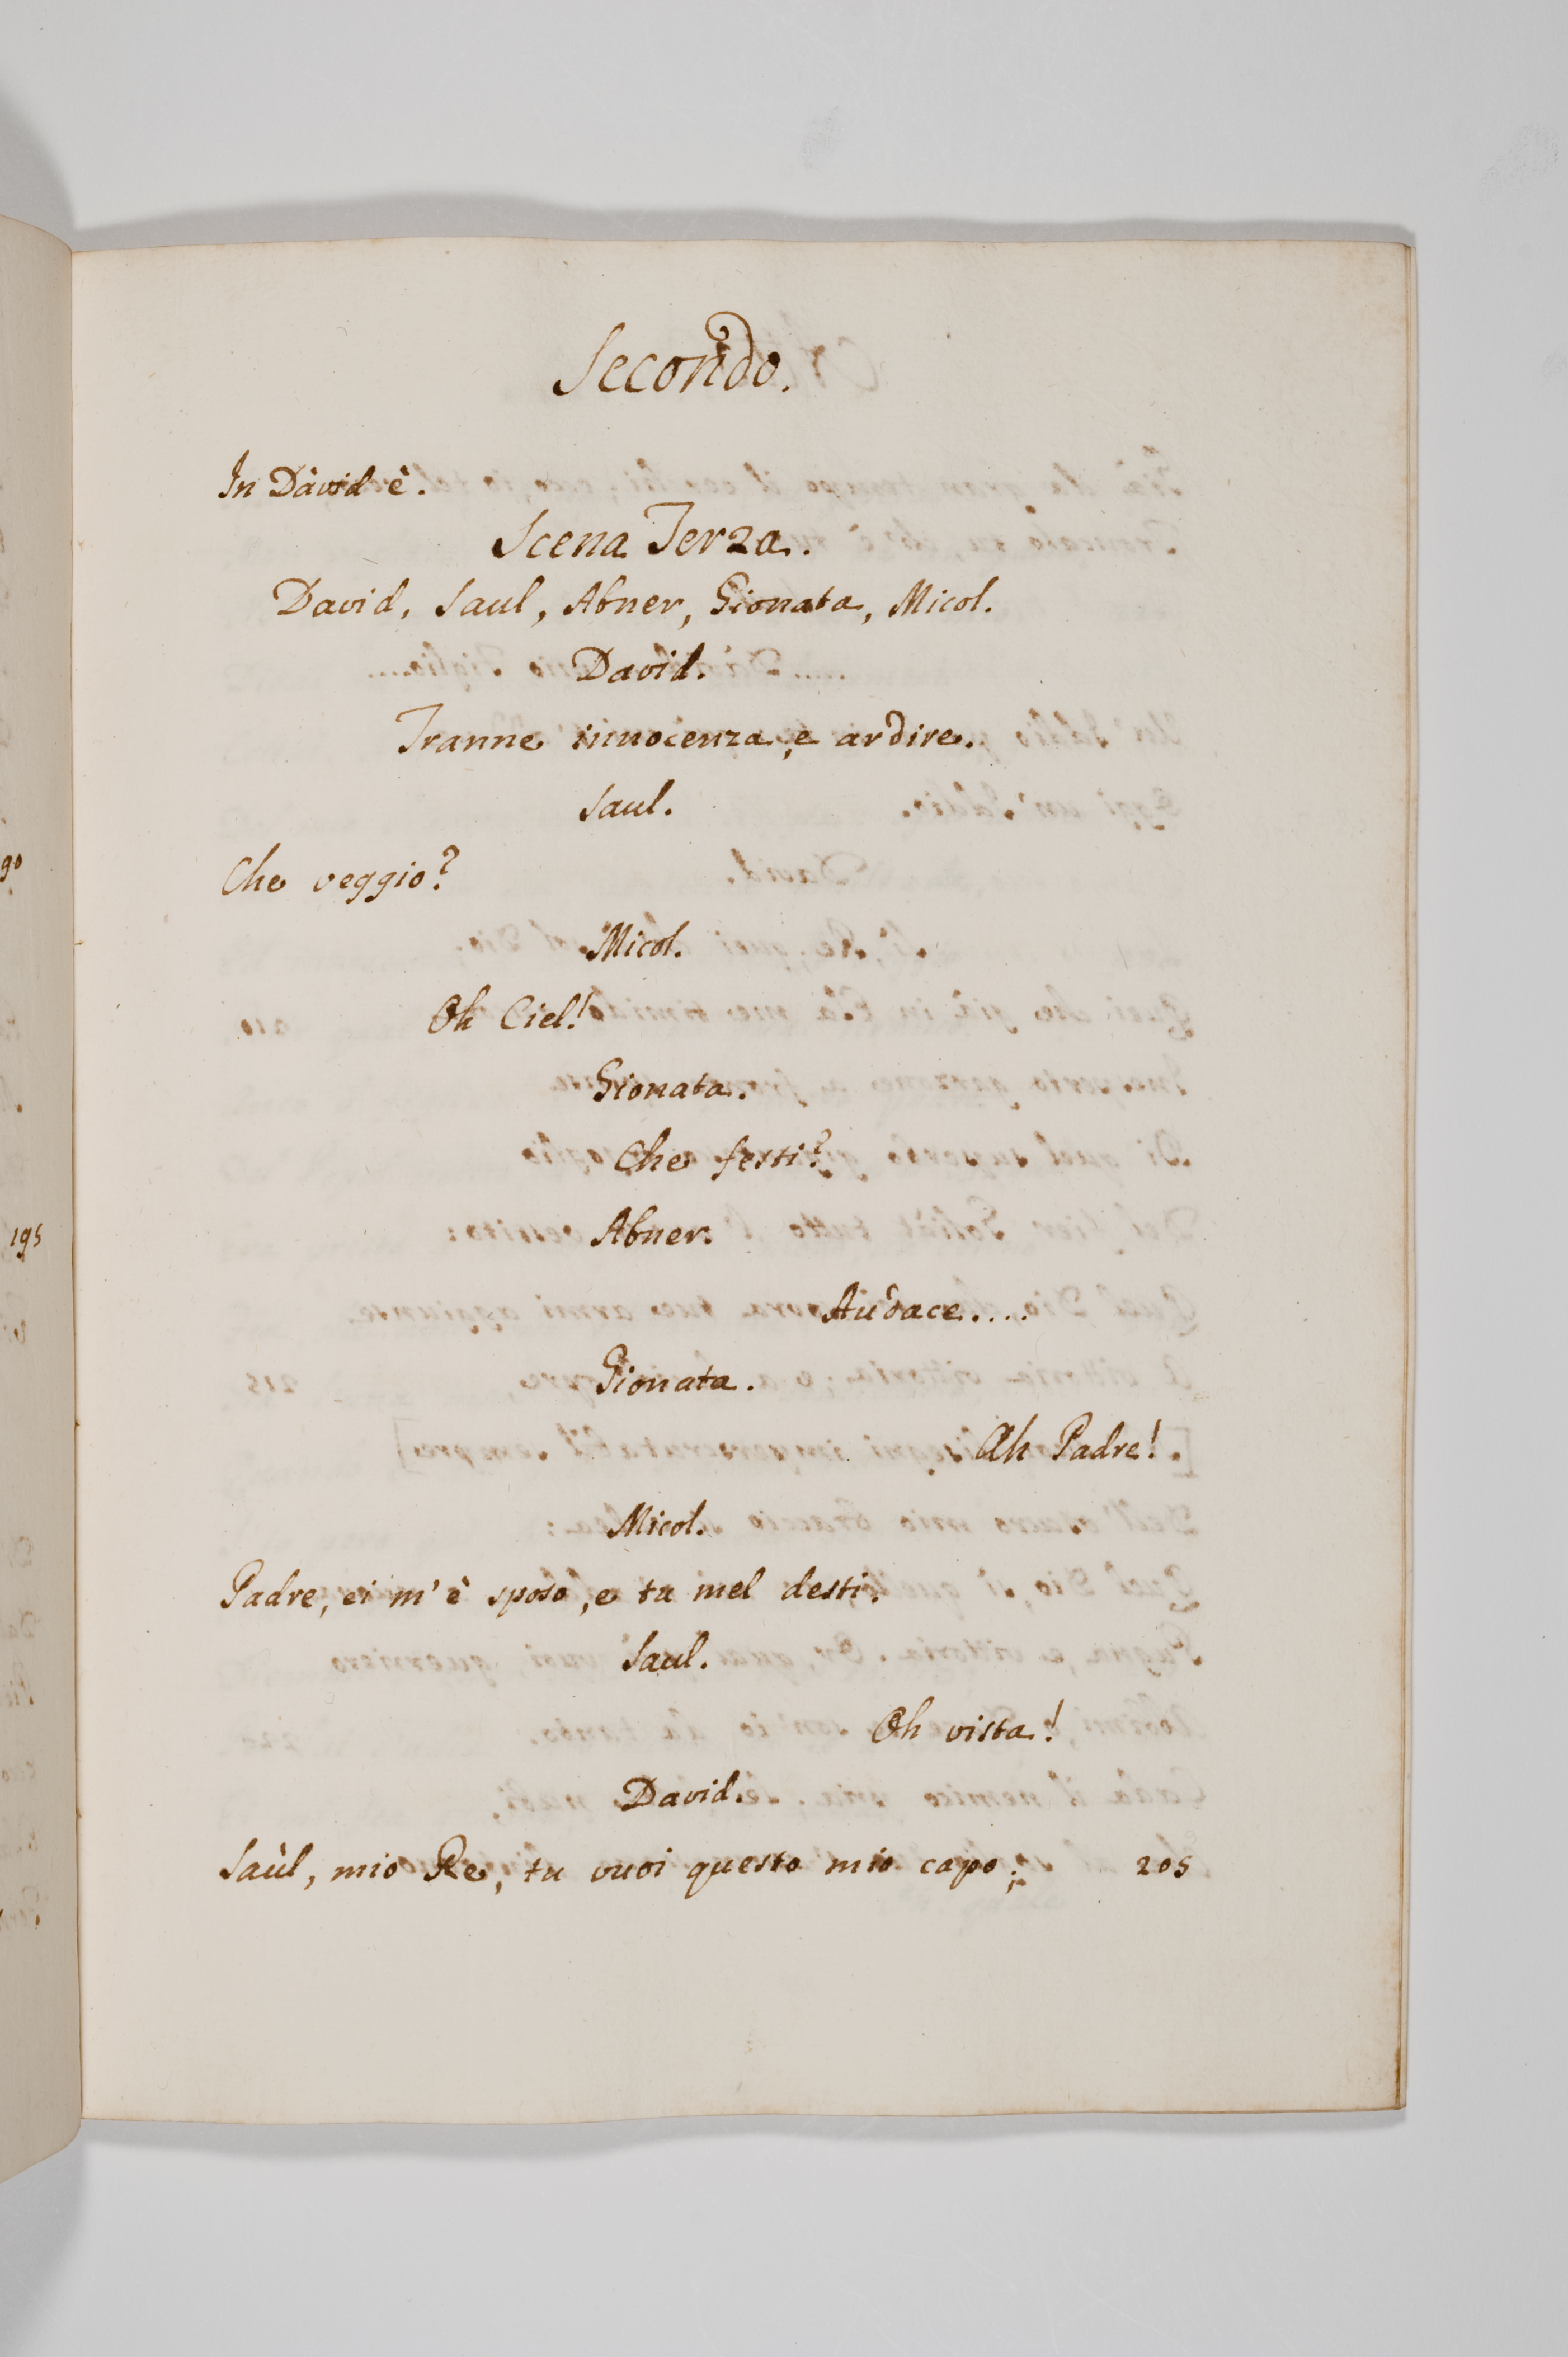 Secondo.
In Dàvid è.
Scena Terza.
David, Saul, Abner, Gionata, Micol.
David.
Tranne innocenza, e ardire.
Saul.
Che veggio?
Micol.
Oh Ciel!
Gionata.
Che festi?
Abner.
Audace....
Gionata.
Ah Padre!
Micol.
Padre, ei m'è sposo, e tu mel desti.
Saul.
Oh vista!
David.
Saùl, mio Re, tu vuoi questo mio capo; 205
90
195